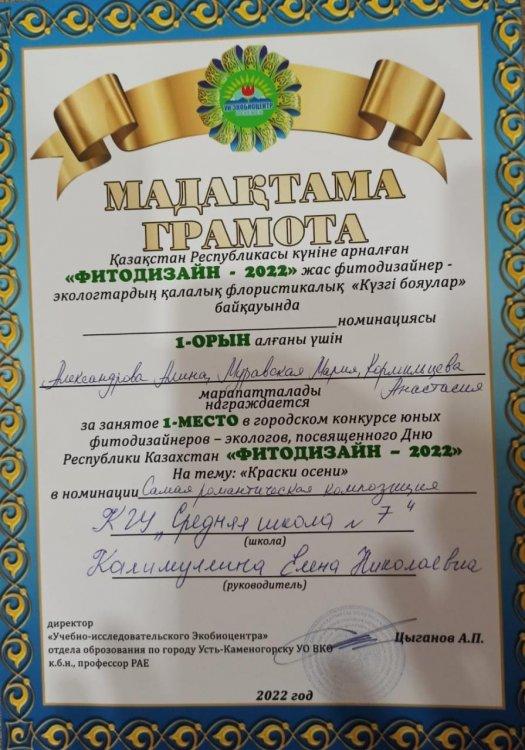 УИ ЭКОБИОЦЕНТР
МАДАҚТАМА
ГРАМОТА
Қазақстан Республикасы күніне арналған
«ФИТОДИЗАЙН - 2022» жас фитодизайнер -
экологтардың қалалық флористикалық «Күзгі бояулар»
байқауында
номинациясы
1-ОРЫН алғаны үшін
Александрова Алина, Муравская Мария, Кормишцева
Анастасия
марапатталады
награждается
за занятое 1-МЕСТО в городском конкурсе юных
фитодизайнеров – экологов, посвященного Дню
Республики Казахстан «ФИТОДИЗАЙН – 2022»
На тему: «Краски осени»
в номинации Самая романтическая композиция
КГУ „Средняя школа № 7"
(школа)
Калимуллина Елена Николаевна
(руководитель)
директор
«Учебно-исследовательского Экобиоцентра»
отдела оброзования по городу Усть-Каменогорску УО ВКО
к.б.н., профессор РАЕ
Цыганов А.П.
2022 год